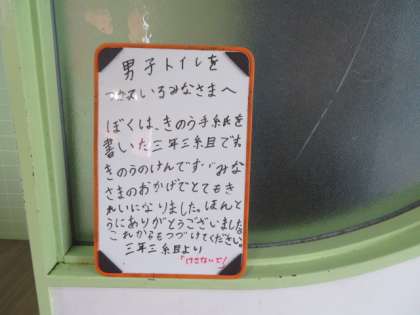 男子トイレを
つかっているみなさまへ
ぼくは、きのう手紙を
書いた三年三組目です。
きのうのけんです。みな
さまのおかげでとてもき
れいになりました。ほんと
うにありがとうございました。
これからもつづけてください。
三年三組目より
「けさないで」